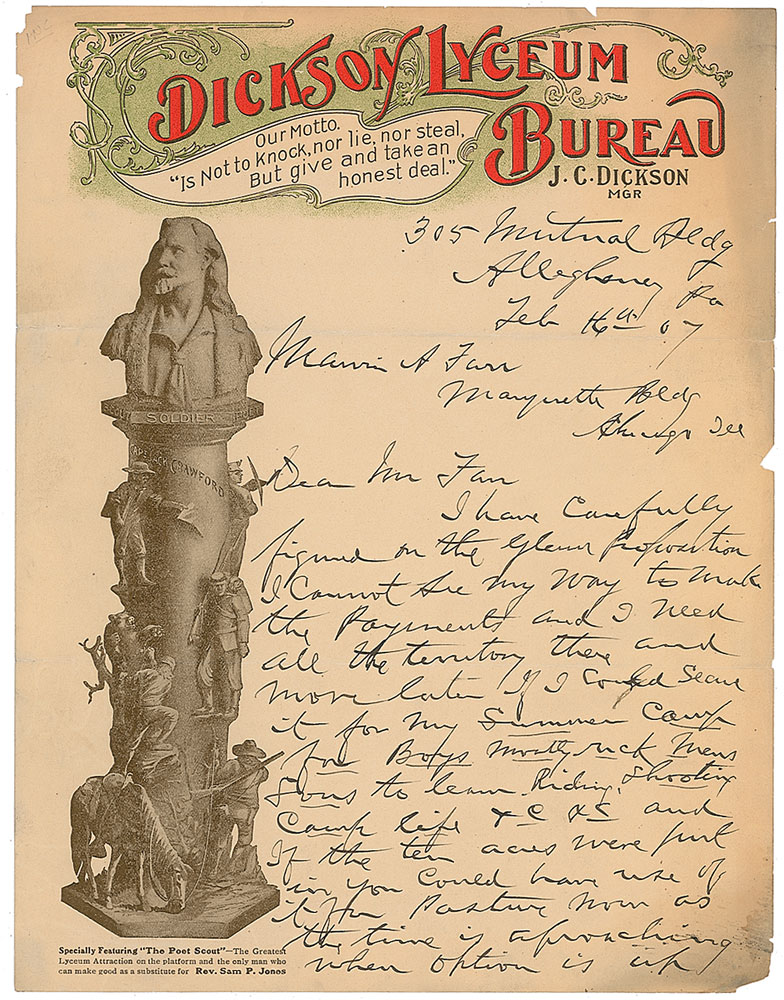 DICKSON LYCEUM
BUREAU
J. C. DICKSON
MGR
Our Motto.
"Is Not to knock, nor lie, nor steal,
But give and take an
honest deal."
305 Mutual Bldg
Allegheney Pa
Feb 16th 07
Marvin A Farr
Marquette Bldg
Chicago Ill
Dear Mr Farr
I have Carefully
figured on the Proposition
I Cannot See my way to make
the Payments and I need
all the territory there and
more later If I Could Secure
it for my Summer Camp
for Boys mostly rich mens
Sons to learn Riding, Shooting
Camp life &C &C and
If the ten acres were put
in you Could have use of
it for Pasture now as
the time is aproaching
when option is up
SOLDIER
CAPT. JACK CRAWFORD
Specially Featuring "The Poet Scout"—The Greatest
Lyceum Attraction on the platform and the only man who
can make good as a substitute for Rev. Sam P. Jones